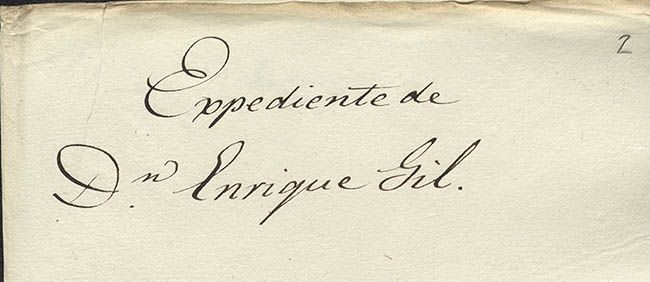 2
Expediente de
D.n Enrique Gil.